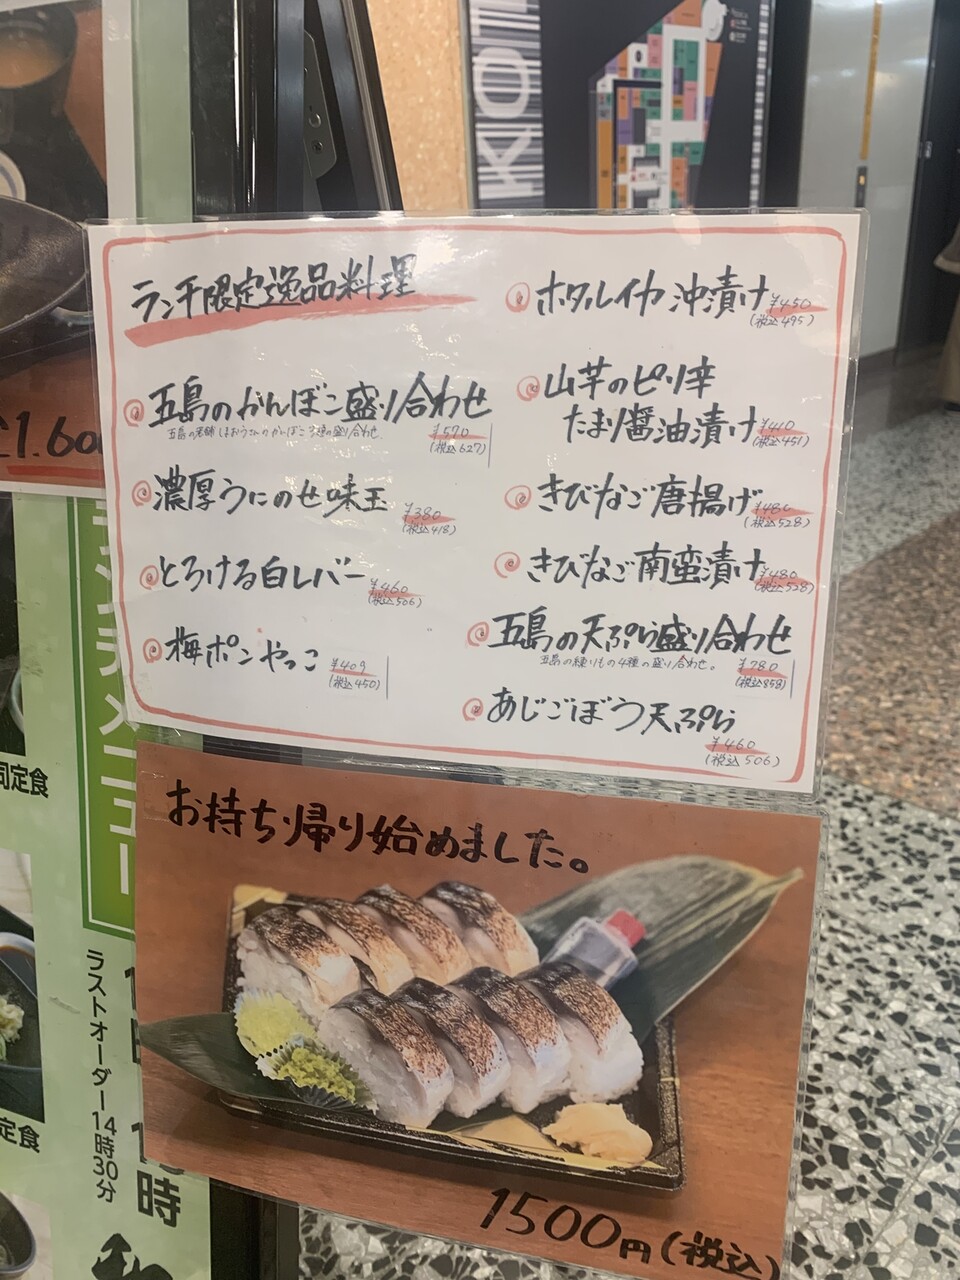 ランチ限定逸品料理
五島のかんぼこ盛り合わせ
¥570
(税込627)
濃厚うにのせ味玉
¥380
(税込418)
とろける白レバー
¥460
(税込506)
梅ポンやっこ
¥409
(税込450)
ホタルイカ沖漬け
¥450
(税込495)
山芋のピリ辛
たまり醤油漬け
¥410
(税込451)
きびなご唐揚げ
¥480
(税込528)
きびなご南蛮漬け
¥480
(税込528)
五島の天ぷら盛り合わせ
五島の練りもの4種の盛り合わせ。
¥780
(税込858)
あじごぼう天ぷら
¥460
(税込506)
お持ち帰り始めました。
1500円(税込)
ラストオーダー14時30分
定食
定食